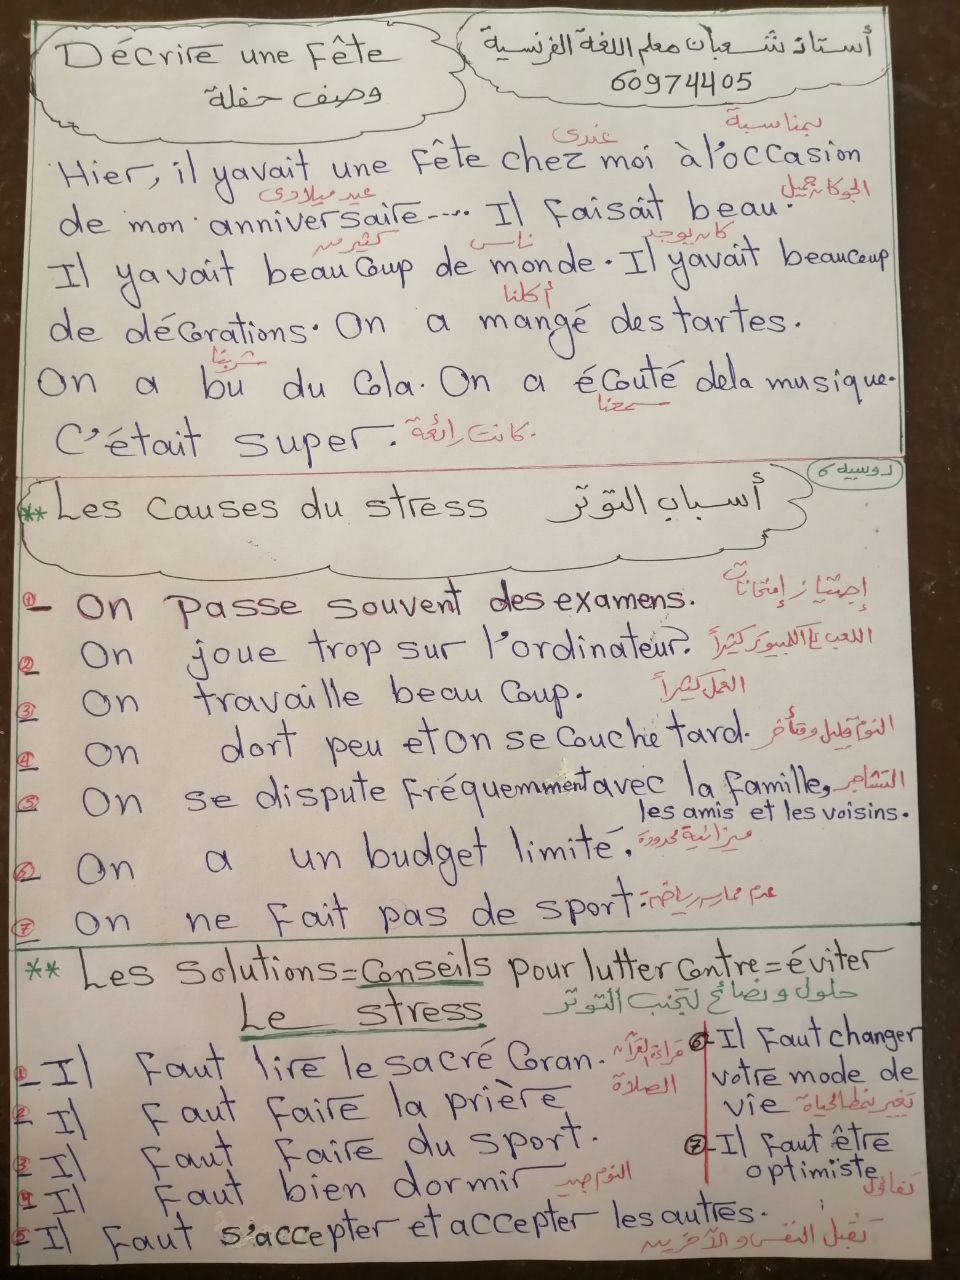 Décrire une fête
وصف حفلة
أستاذ شعبان معلم اللغة الفرنسية
60974405
بمناسبة
عندى
Hier, il yavait une fête chez moi à l'occasion
عيد ميلادى
الجو كان جميل
de mon anniversaire.... Il faisait beau.
كثير من
ناس
كان يوجد
Il yavait beaucoup de monde. Il yavait beaucoup
أكلنا
de décorations. On a mangé des tartes.
شربنا
On a bu du Cola. On a écouté dela musique.
سمعنا
C'était super. كانت رائعة.
دوسيه 6
** Les causes du stress أسباب التوتر
1- On passe souvent des examens. إجتياز إمتحانات
2- On joue trop sur l'ordinateur. اللعب ع الكمبيوتر كثيراً
3- On travaille beaucoup. العمل كثيراً
4- On dort peu et on se couche tard. النوم قليل ومتأخر
5- On se dispute fréquemment avec la famille, التشاجر
les amis et les voisins.
6- On a un budget limité. ميزانية محدودة
7- On ne fait pas de sport. عدم ممارسة رياضة
** Les solutions=Conseils pour lutter contre=éviter
Le stress حلول و نصائح لتجنب التوتر
1- Il faut lire le sacré Coran. قراءة القرآن
2- Il faut faire la prière الصلاة
3- Il faut faire du sport.
4- Il faut bien dormir النوم جيد
5- Il faut s'accepter et accepter les autres.
تقبل النفس والآخرين
6- Il faut changer
votre mode de
vie تغير نمط الحياة
7- Il faut être
optimiste
تفائل